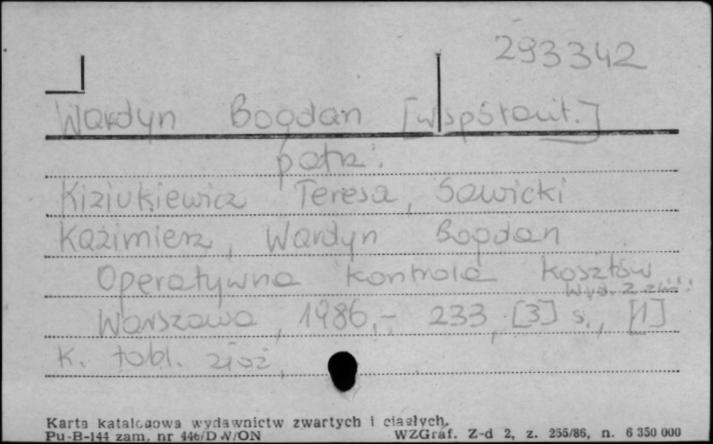 293342
Wardyn Bogdan [współaut.]
patrz:
Kiziukiewicz Teresa, Sawicki
Kazimierz, Wardyn Bogdan
Operatywna kontrola kosztów
Wyd. 2 zm.
Warszawa, 1986,- 233, [3] s., [1]
k. tabl. złoż.
Karta katalogowa wydawnictw zwartych i ciągłych.
Pu-B-144 zam. nr 446/DW/ON WZGraf. Z-d 2, z. 255/86, n. 6 350 000